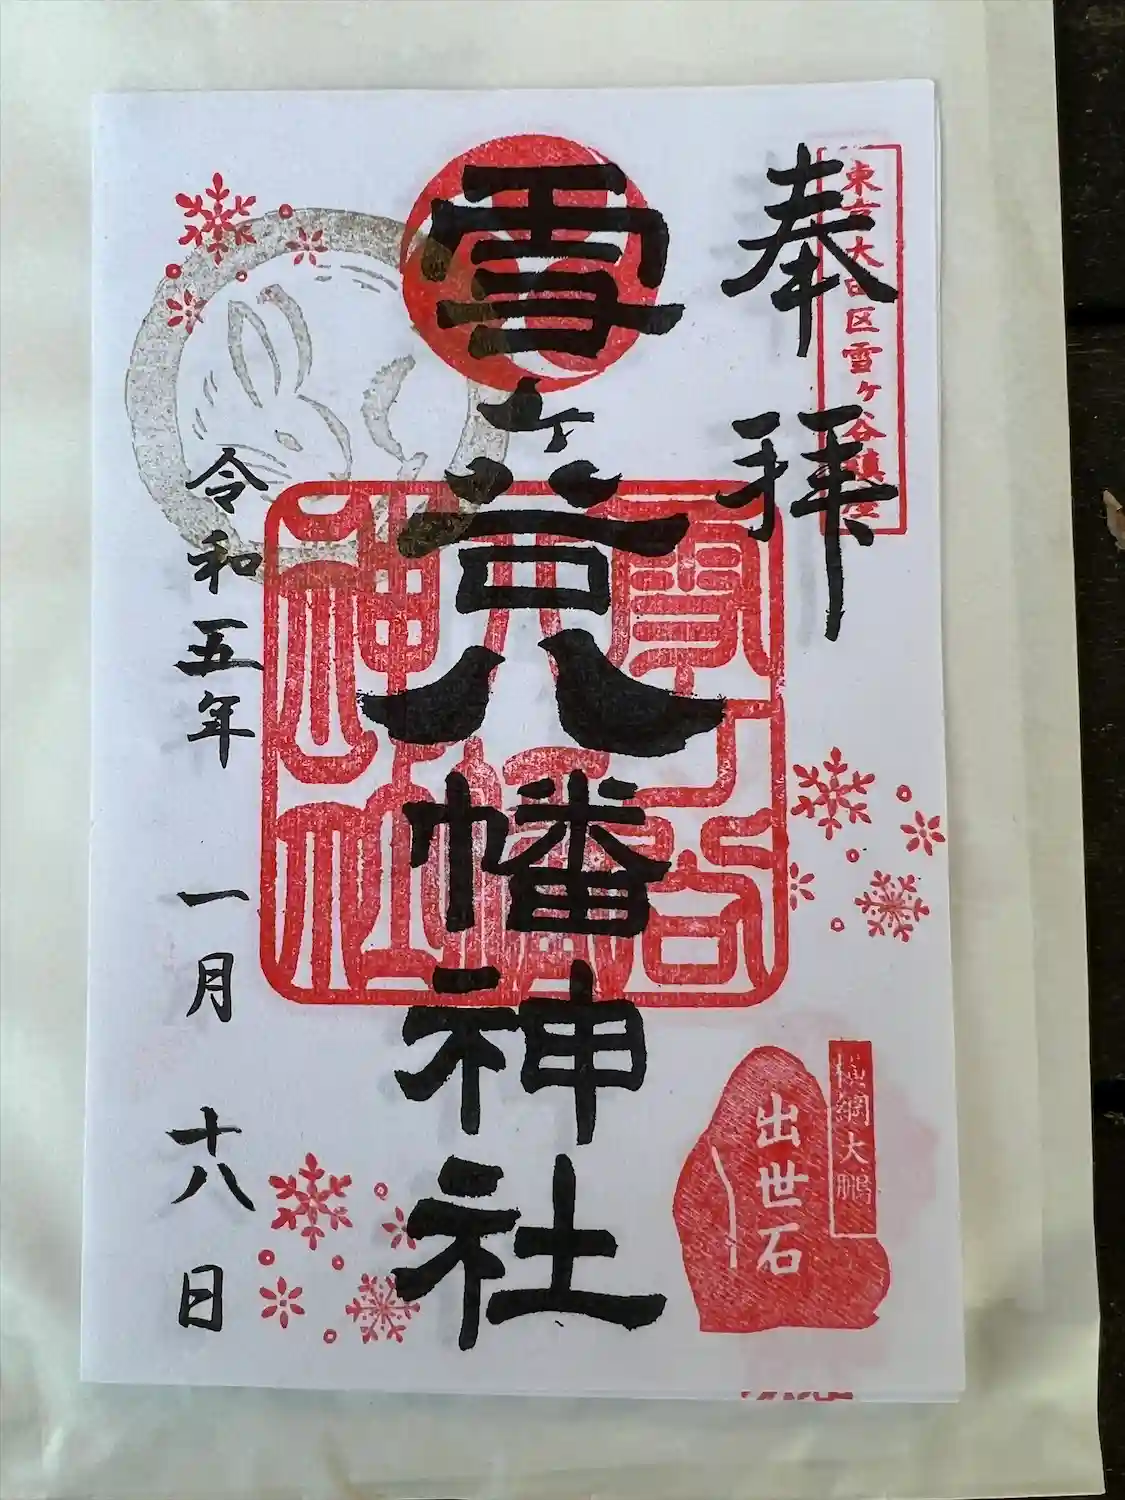 奉拝
東京大田区雪ヶ谷鎮座
雪ヶ谷八幡神社
雪ヶ谷八幡神社
横綱大鵬
出世石
令和五年 一月 十八日